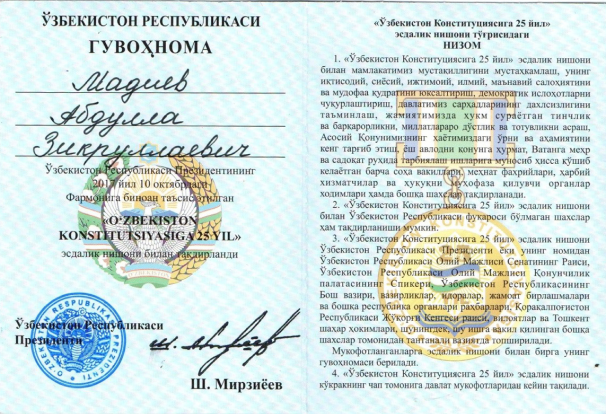 ЎЗБЕКИСТОН РЕСПУБЛИКАСИ
ГУВОҲНОМА
Мадиев
Абдулла
Зикруллаевич
Ўзбекистон Республикаси Президентининг
2017 йил 10 октябрдаги
Фармонига биноан таъсис этилган
«O‘ZBEKISTON
KONSTITUTSIYASIGA 25 YIL»
эсдалик нишони билан тақдирланди
Ўзбекистон Республикаси
Президенти
Ш. Мирзиёев
«Ўзбекистон Конституциясига 25 йил»
эсдалик нишони тўғрисидаги
НИЗОМ
1. «Ўзбекистон Конституциясига 25 йил» эсдалик нишони
билан мамлакатимиз мустақиллигини мустаҳкамлаш, унинг
иқтисодий, сиёсий, ижтимоий, илмий, маънавий салоҳиятини
ва мудофаа қудратини юксалтириш, демократик ислоҳотларни
чуқурлаштириш, давлатимиз сарҳадларининг дахлсизлигини
таъминлаш, жамиятимизда ҳукм сураётган тинчлик
ва барқарорликни, миллатлараро дўстлик ва тотувликни асраш,
Асосий Қонунимизнинг ҳаётимиздаги ўрни ва аҳамиятини
кенг тарғиб этиш, ёш авлодни қонунга ҳурмат, Ватанга меҳр
ва садоқат руҳида тарбиялаш ишларига муносиб ҳисса қўшиб
келаётган барча соҳа вакиллари, меҳнат фахрийлари, ҳарбий
хизматчилар ва ҳуқуқни муҳофаза қилувчи органлар
ходимлари ҳамда бошқа шахслар тақдирланади.
2. «Ўзбекистон Конституциясига 25 йил» эсдалик нишони
билан Ўзбекистон Республикаси фуқароси бўлмаган шахслар
ҳам тақдирланиши мумкин.
3. «Ўзбекистон Конституциясига 25 йил» эсдалик нишони
Ўзбекистон Республикаси Президенти ёки унинг номидан
Ўзбекистон Республикаси Олий Мажлиси Сенатининг Раиси,
Ўзбекистон Республикаси Олий Мажлиси Қонунчилик
палатасининг Спикери, Ўзбекистон Республикасининг
Бош вазири, вазирликлар, идоралар, жамоат бирлашмалари
ва бошқа республика органлари раҳбарлари, Қорақалпоғистон
Республикаси Жўқорғи Кенгеси раиси, вилоятлар ва Тошкент
шаҳар ҳокимлари, шунингдек, вакил қилинган бошқа
шахслар томонидан тантанали вазиятда топширилади.
Мукофотланганларга эсдалик нишони билан бирга унинг
гувоҳномаси берилади.
4. «Ўзбекистон Конституциясига 25 йил» эсдалик нишони
кўкракнинг чап томонига давлат мукофотларидан кейин тақилади.